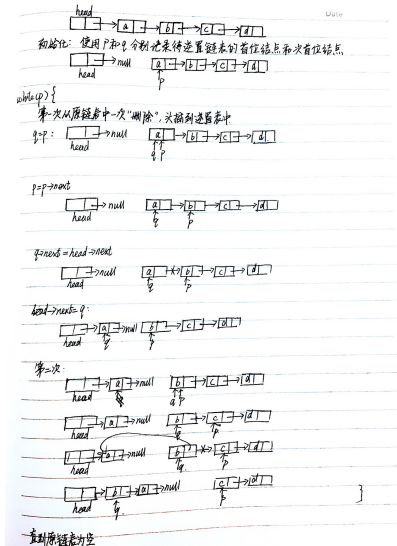 Date
head
a b c d
初始化: 使用p和q分别记录待逆置链表的首位结点和次首位结点
null a b c d
head p
while(p){
第一次从原链表中一次"删除",头插到逆置表中
q=p: null a b c d
head q p
p=p→next
null a b c d
head q p
q→next=head→next
null a b c d
head q p
head→next=q:
a null b c d
head q p
第二次:
a null b c d
head q p
a null b c d
head q p
a null b c d
head q p
b a null c d
head q p
}
直到原链表为空